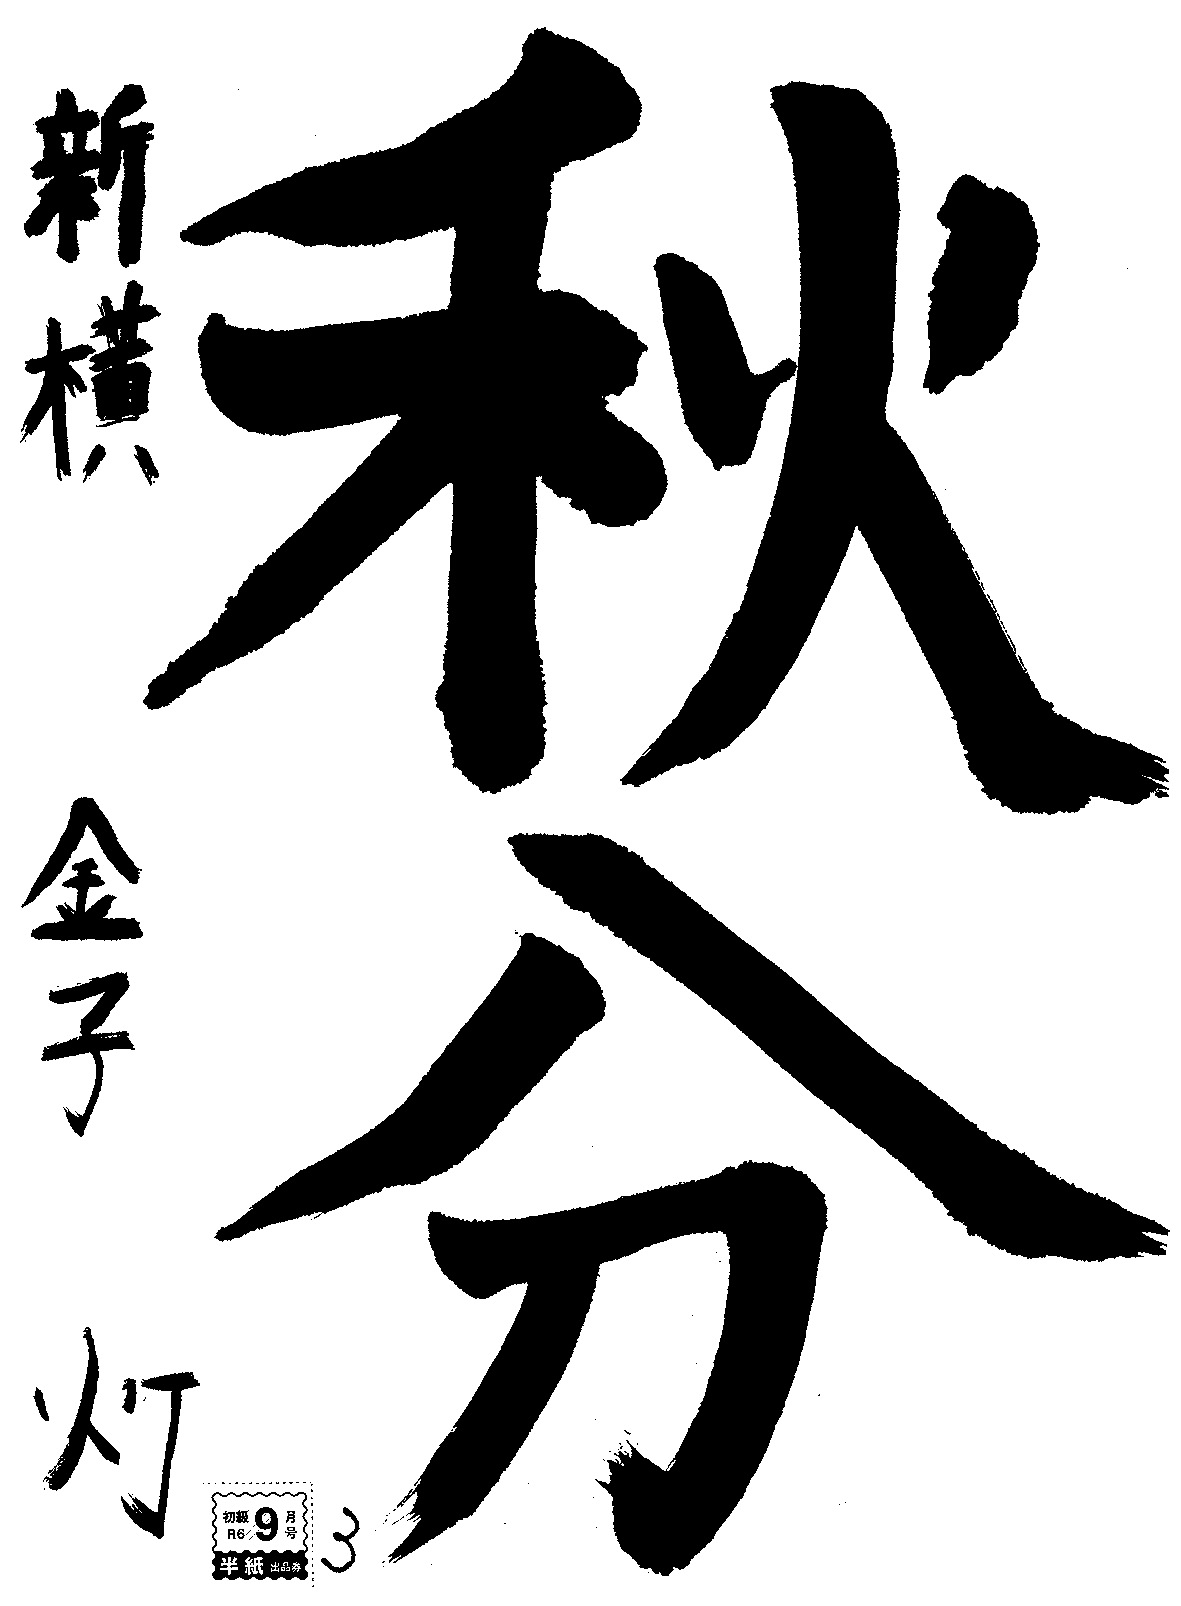 秋分
新横 金子 灯
初級 R6/9月号
半紙 出品券
3